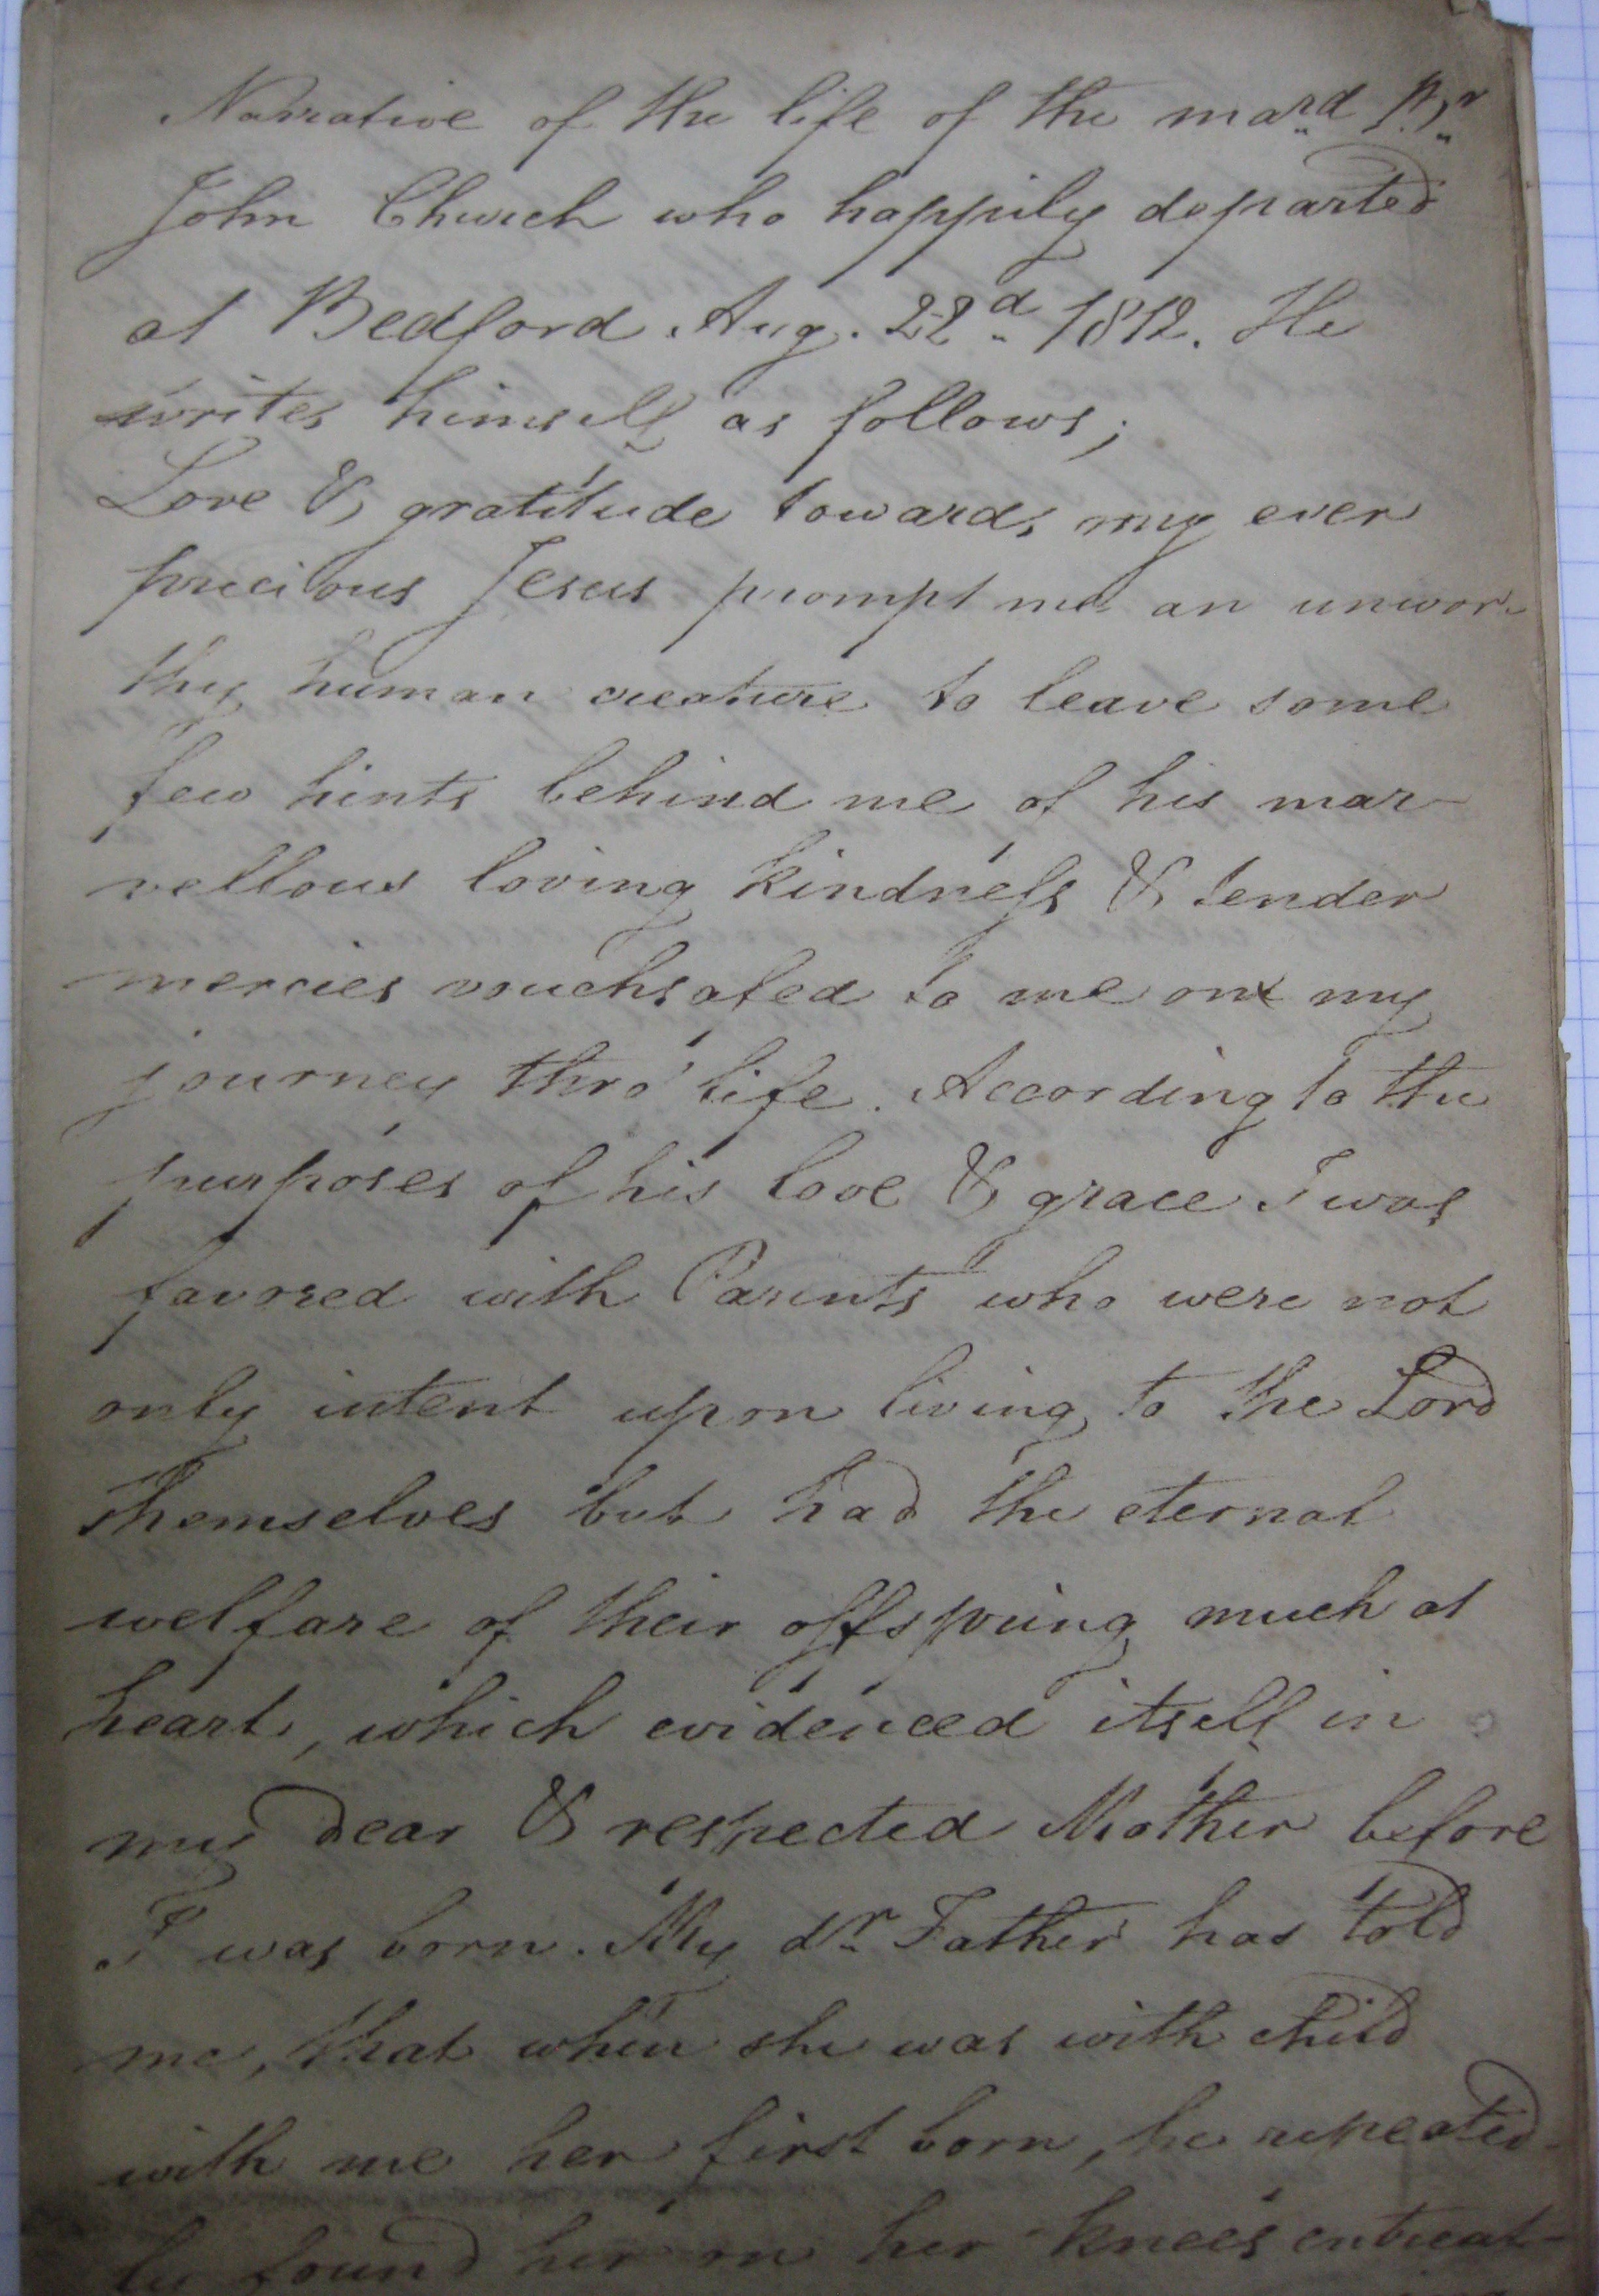 Narrative of the life of the mard Br
John Church who happily departed
at Bedford Aug. 22d 1812. He
writes himself as follows;
Love & gratitude towards my ever
precious Jesus prompt me an unwor-
thy human creature to leave some
few hints behind me of his mar-
vellous loving kindness & tender
mercies vouchsafed to me on my
journey thro' life. According to the
purposes of his love & grace I was
favored with Parents who were not
only intent upon living to the Lord
themselves but had the eternal
welfare of their offspring much at
heart, which evidenced itself in
my dear & respected Mother before
I was born. My dr Father has told
me, that when she was with child
with me her first born, he repeated-
ly found her on her knees entreat-